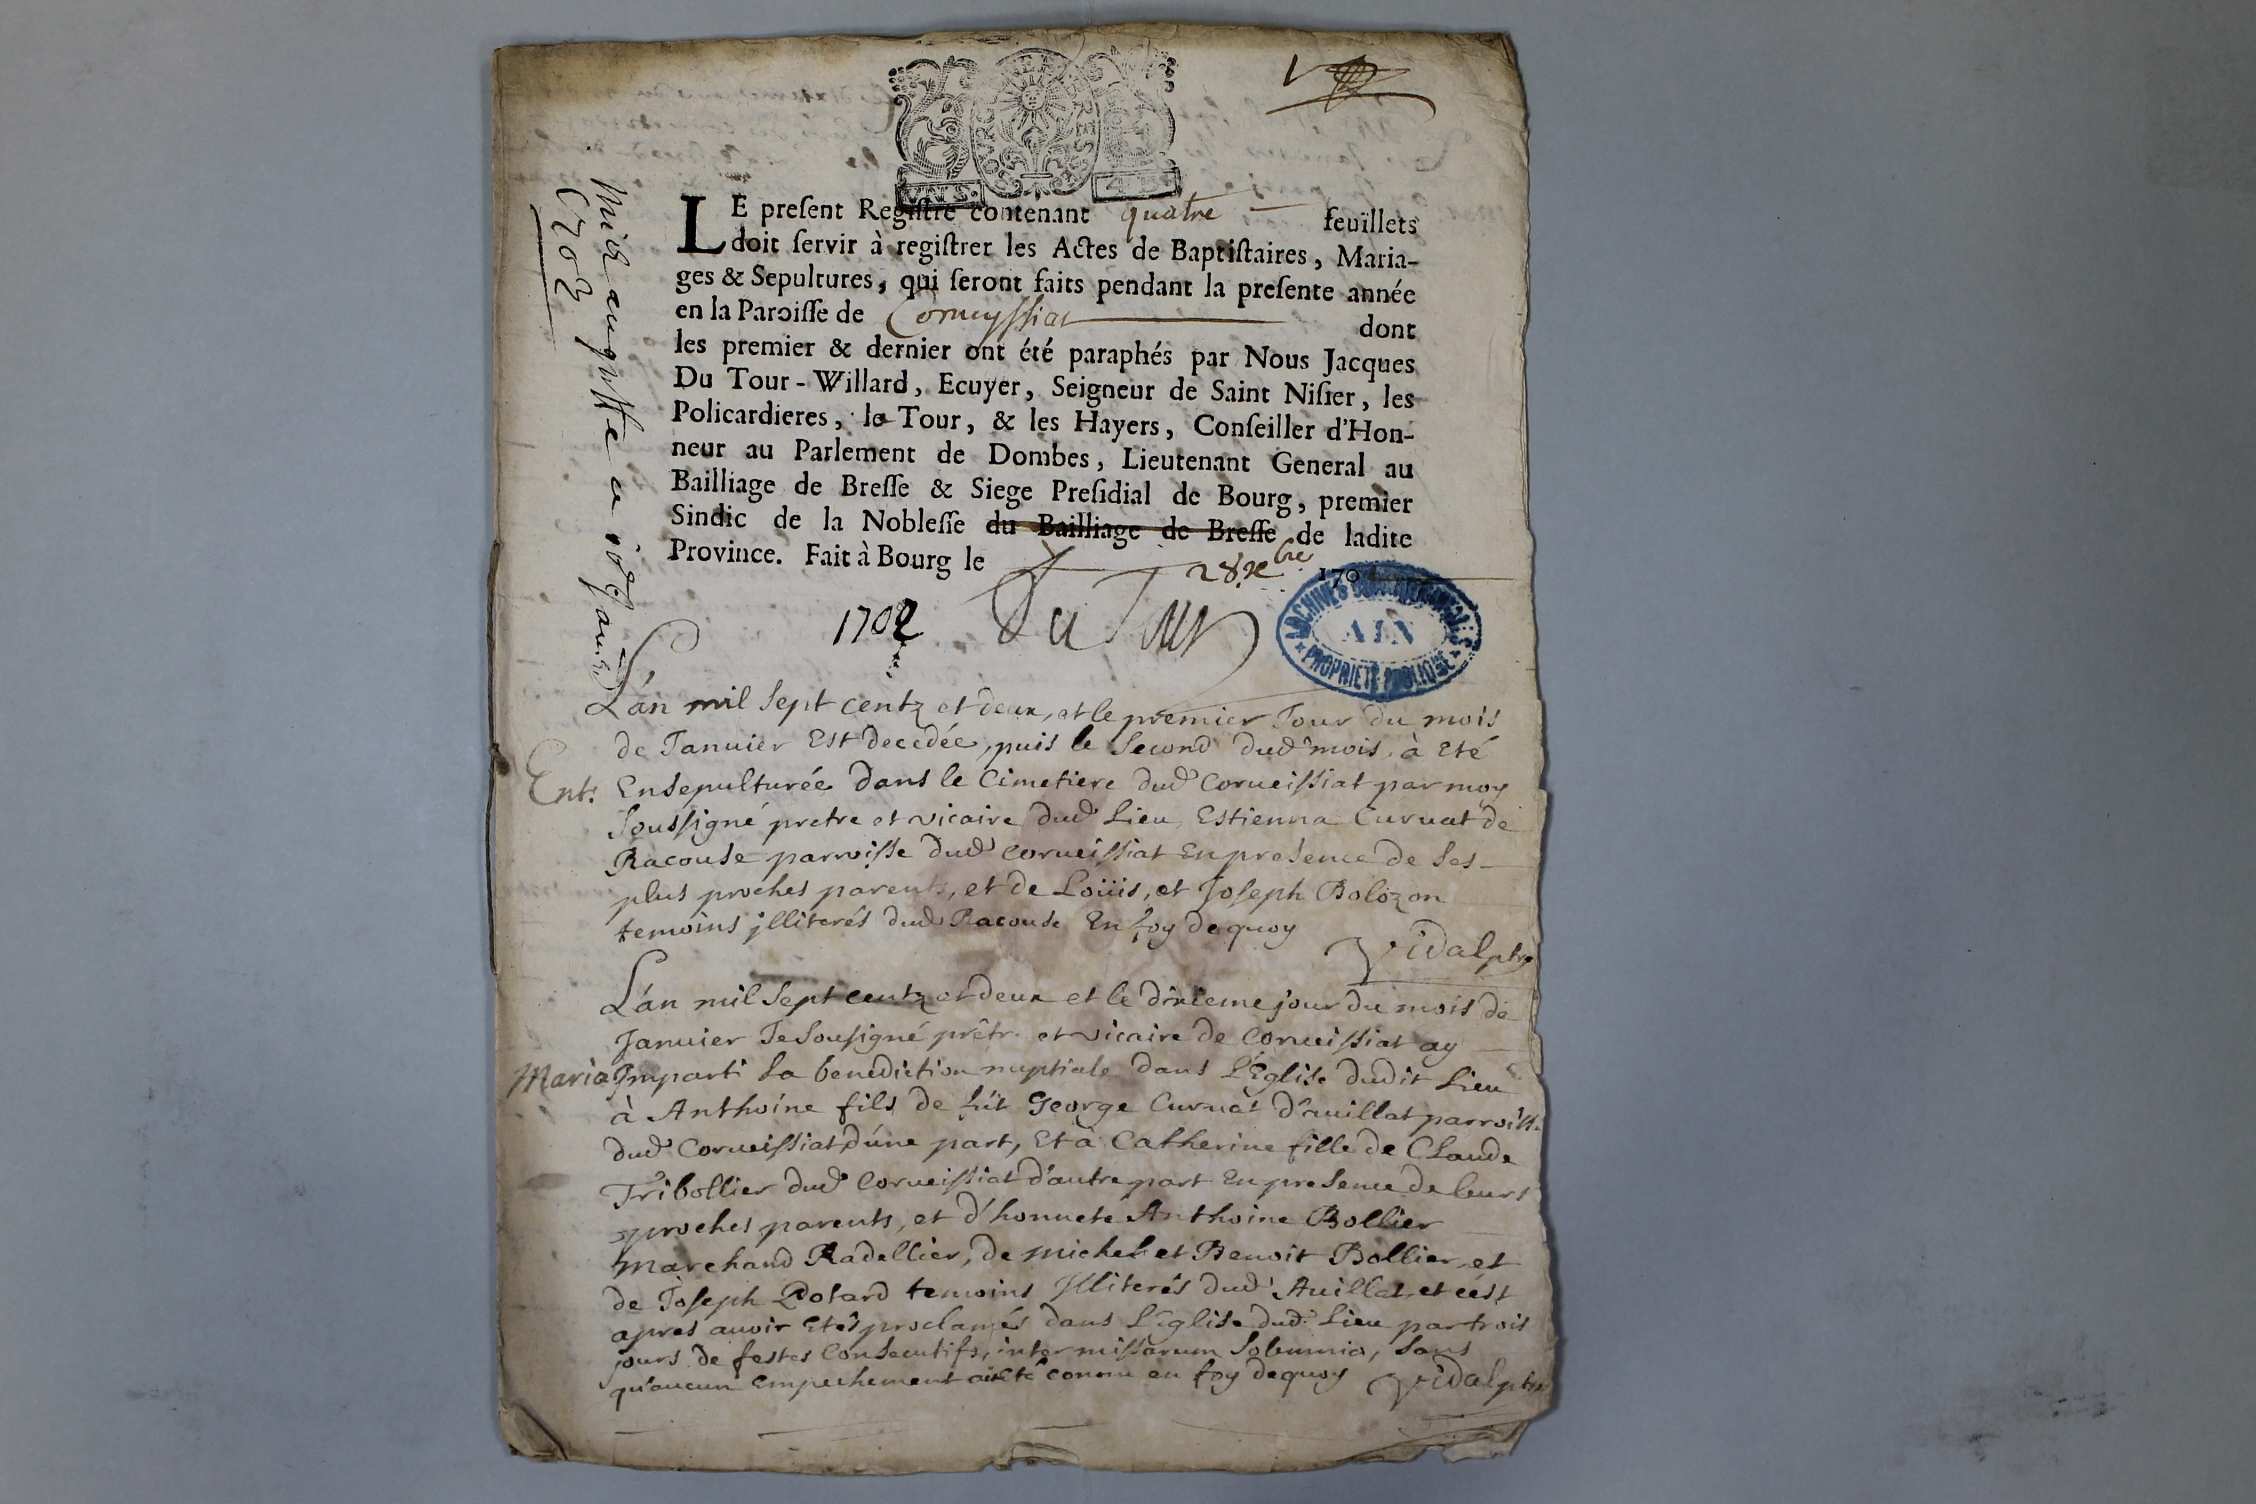 VNS. 4 D
LE preſent Regiſtre contenant quatre feuïllets
doit ſervir à regiſtrer les Actes de Baptiſtaires, Maria-
ges & Sepultures, qui ſeront faits pendant la preſente année
en la Paroiſſe de Corueyſſiat dont
les premier & dernier ont été paraphés par Nous Jacques
Du Tour-Willard, Ecuyer, Seigneur de Saint Niſier, les
Policardieres, la Tour, & les Hayers, Conſeiller d'Hon-
neur au Parlement de Dombes, Lieutenant General au
Bailliage de Breſſe & Siege Preſidial de Bourg, premier
Sindic de la Nobleſſe du Bailliage de Breſſe de ladite
Province. Fait à Bourg le 28 xbre 170
1702 Du Tour
ARCHIVES DEPARTEMENTALES
AIN
PROPRIETE PUBLIQUE
1703
L'an mil sept centz et deux, et le premier Jour du mois
de Januier Est decedée, puis le Second dud mois à Eté
Ent: Ensepulturée dans le Cimetiere dud Corueiſſiat par moy
Soussigné pretre et vicaire dud Lieu Estienna Curuat de
Racouse parroisse dud Corueissiat En presence de ses
plus proches parents, et de Loüis, et Joseph Bolozon
temoins jlliterés dud Racouse En foy de quoy Vidal ptre
L'an mil sept centz et deux et le dixieme jour du mois de
Januier Je Sousigné prêtr. et vicaire de Corueissiat ay
Maria Imparti la benediction nuptiale dans L'Eglise dudit Lieu
à Anthoine fils de fût George Curuat d'auillat parroiss.
dud Corueissiat d'une part, Et à Catherine fille de Claude
Tribollier dud Corueissiat d'autre part En presence de leurs
proches parents, et d'honnete Anthoine Bollier
marchand Radellier, de michel et Benoit Bollier, et
de Joseph temoins Jlliterés dud Auillat, et c'est
apres auoir Etés proclamés dans L'Eglise dud Lieu par trois
jours de festes Consecutifs, inter missarum Solemnia, Sans
qu'aucun Empechement ait Eté connu en foy dequoy Vidal ptre